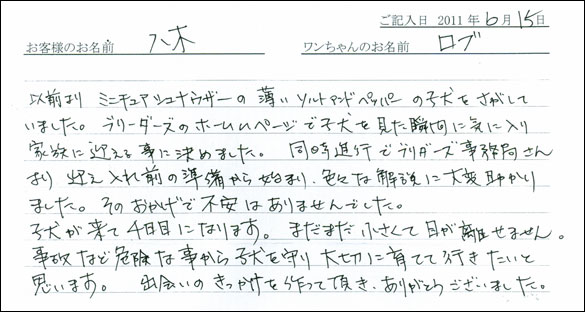 ご記入日 2011年6月15日
お客様のお名前 八木 ワンちゃんのお名前 ロブ
以前より ミニチュアシュナウザーの薄いソルトアンドペッパーの子犬をさがして
いました。ブリーダーズのホームページで子犬を見た瞬間に気に入り
家族に迎える事に決めました。同時進行でブリダーズ事務局さん
より 迎え入れ前の準備から始まり、色々な解説に大変助かり
ました。そのおかげで不安はありませんでした。
子犬が来て4日目になります。まだまだ小さくて目が離せません。
事故など危険な事から子犬を守り大切に育てて行きたいと
思います。 出会いのきっかけを作って頂き、ありがとうございました。